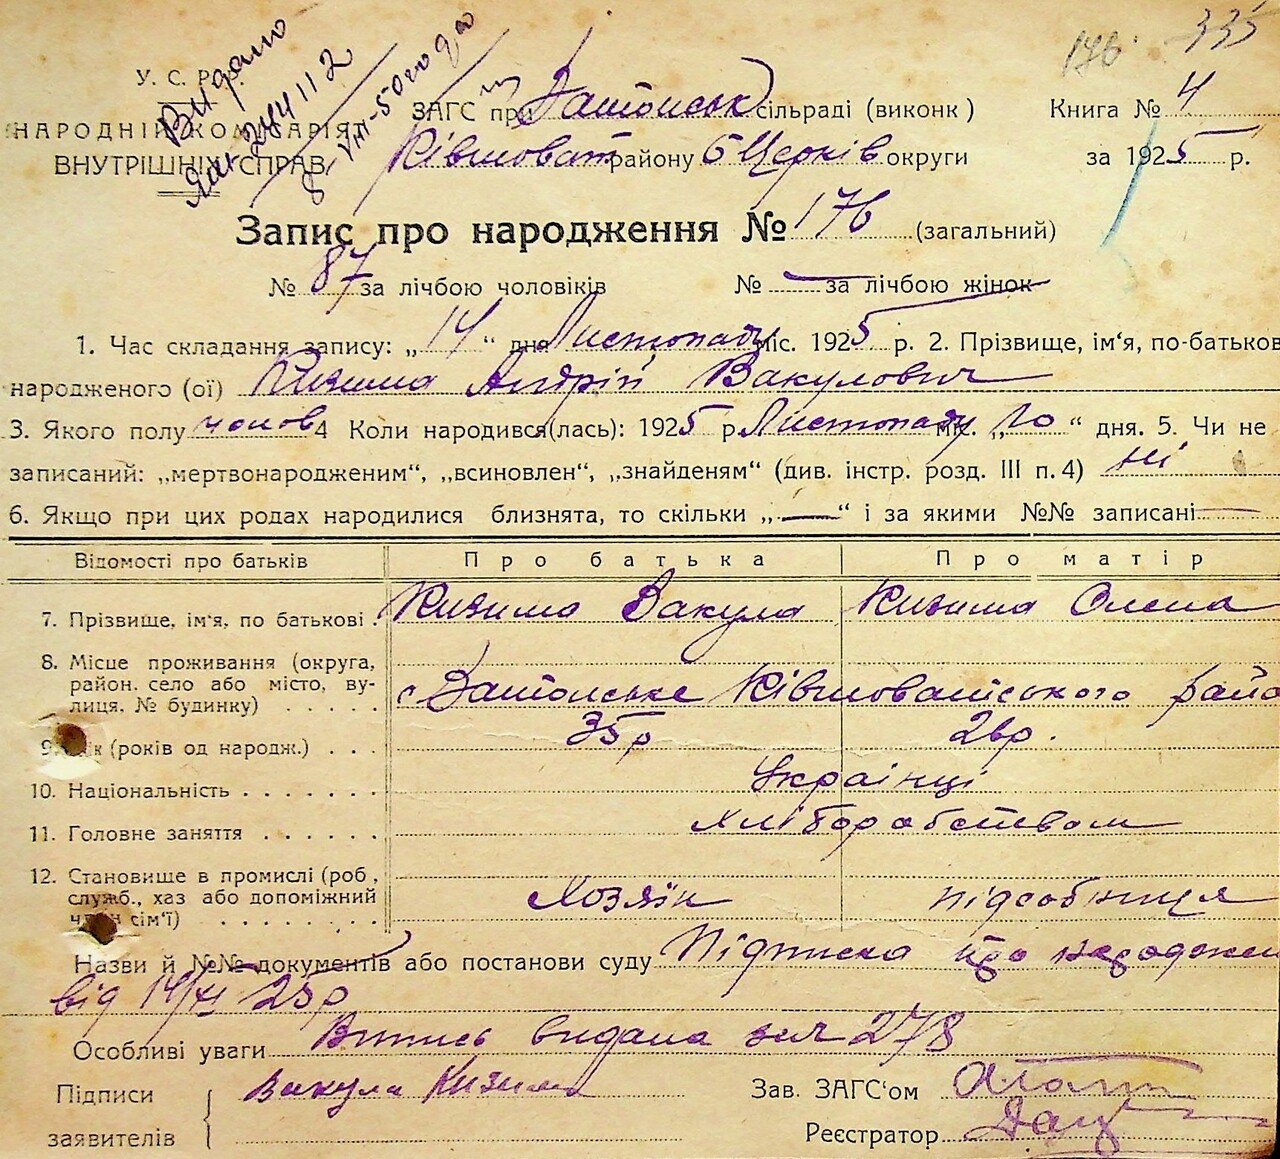 335
176.
Видано
ЯАг 244112
8/VIII-50 года
У. С. Р. Р.
НАРОДНІЙ КОМІСАРІЯТ
ВНУТРІШНІХ СПРАВ
ЗАГС при Затонськ сільраді (виконк)
Ківшоват району БЦерків округи
Книга № 4
за 1925 р.
Запис про народження № 176 (загальний)
№ 87 за лічбою чоловіків № — за лічбою жінок
1. Час складання запису: „14“ дня Листопаду міс. 1925 р. 2. Прізвище, ім‘я, по-батькові
народженого (ої) Кизима Андрій Вакулович
3. Якого полу чолов 4 Коли народився(лась): 1925 р Листопаду міс. „10“ дня. 5. Чи не
записаний: „мертвонародженим“, „всиновлен“, „знайденям“ (див. інстр. розд. III п. 4) ні
6. Якщо при цих родах народилися близнята, то скільки „—“ і за якими №№ записані —
Відомості про батьків Про батька Про матір
7. Прізвище, ім‘я, по батькові . Кизима Вакула Кизима Олена
8. Місце проживання (округа,
район, село або місто, ву-
лиця, № будинку) . . . . . с Затонське Ківшоватського райо
9. Вік (років од народж.) . . . 35р 26р.
10. Національність . . . . . . . Українці
11. Головне заняття . . . . . . Хліборобством
12. Становище в промислі (роб.,
служб., хаз або допоміжний
член сім‘ї) . . . . . . . . . . Хозяїн підсобниця
Назви й №№ документів або постанови суду Підписка про народжен
від 14/XI 25р
Особливі уваги Випись видана за № 278
Підписи
заявителів
Вакула Кизима
Зав. ЗАГС‘ом
Реєстратор